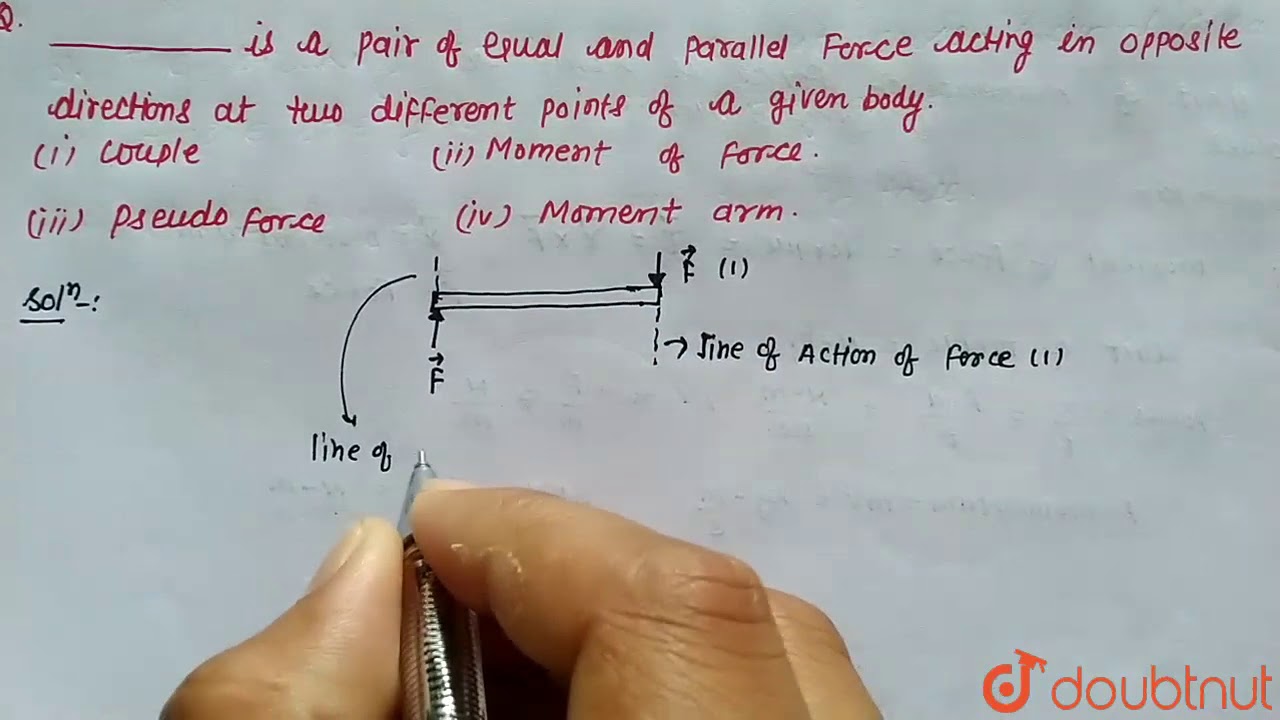 Q.
________ is a pair of equal and parallel Force acting in opposite
directions at two different points of a given body.
(i) couple (ii) Moment of force.
(iii) Pseudo force (iv) Moment arm.
Solⁿ:
F⃗ (1)
→ line of Action of force (1)
F⃗
line of
doubtnut